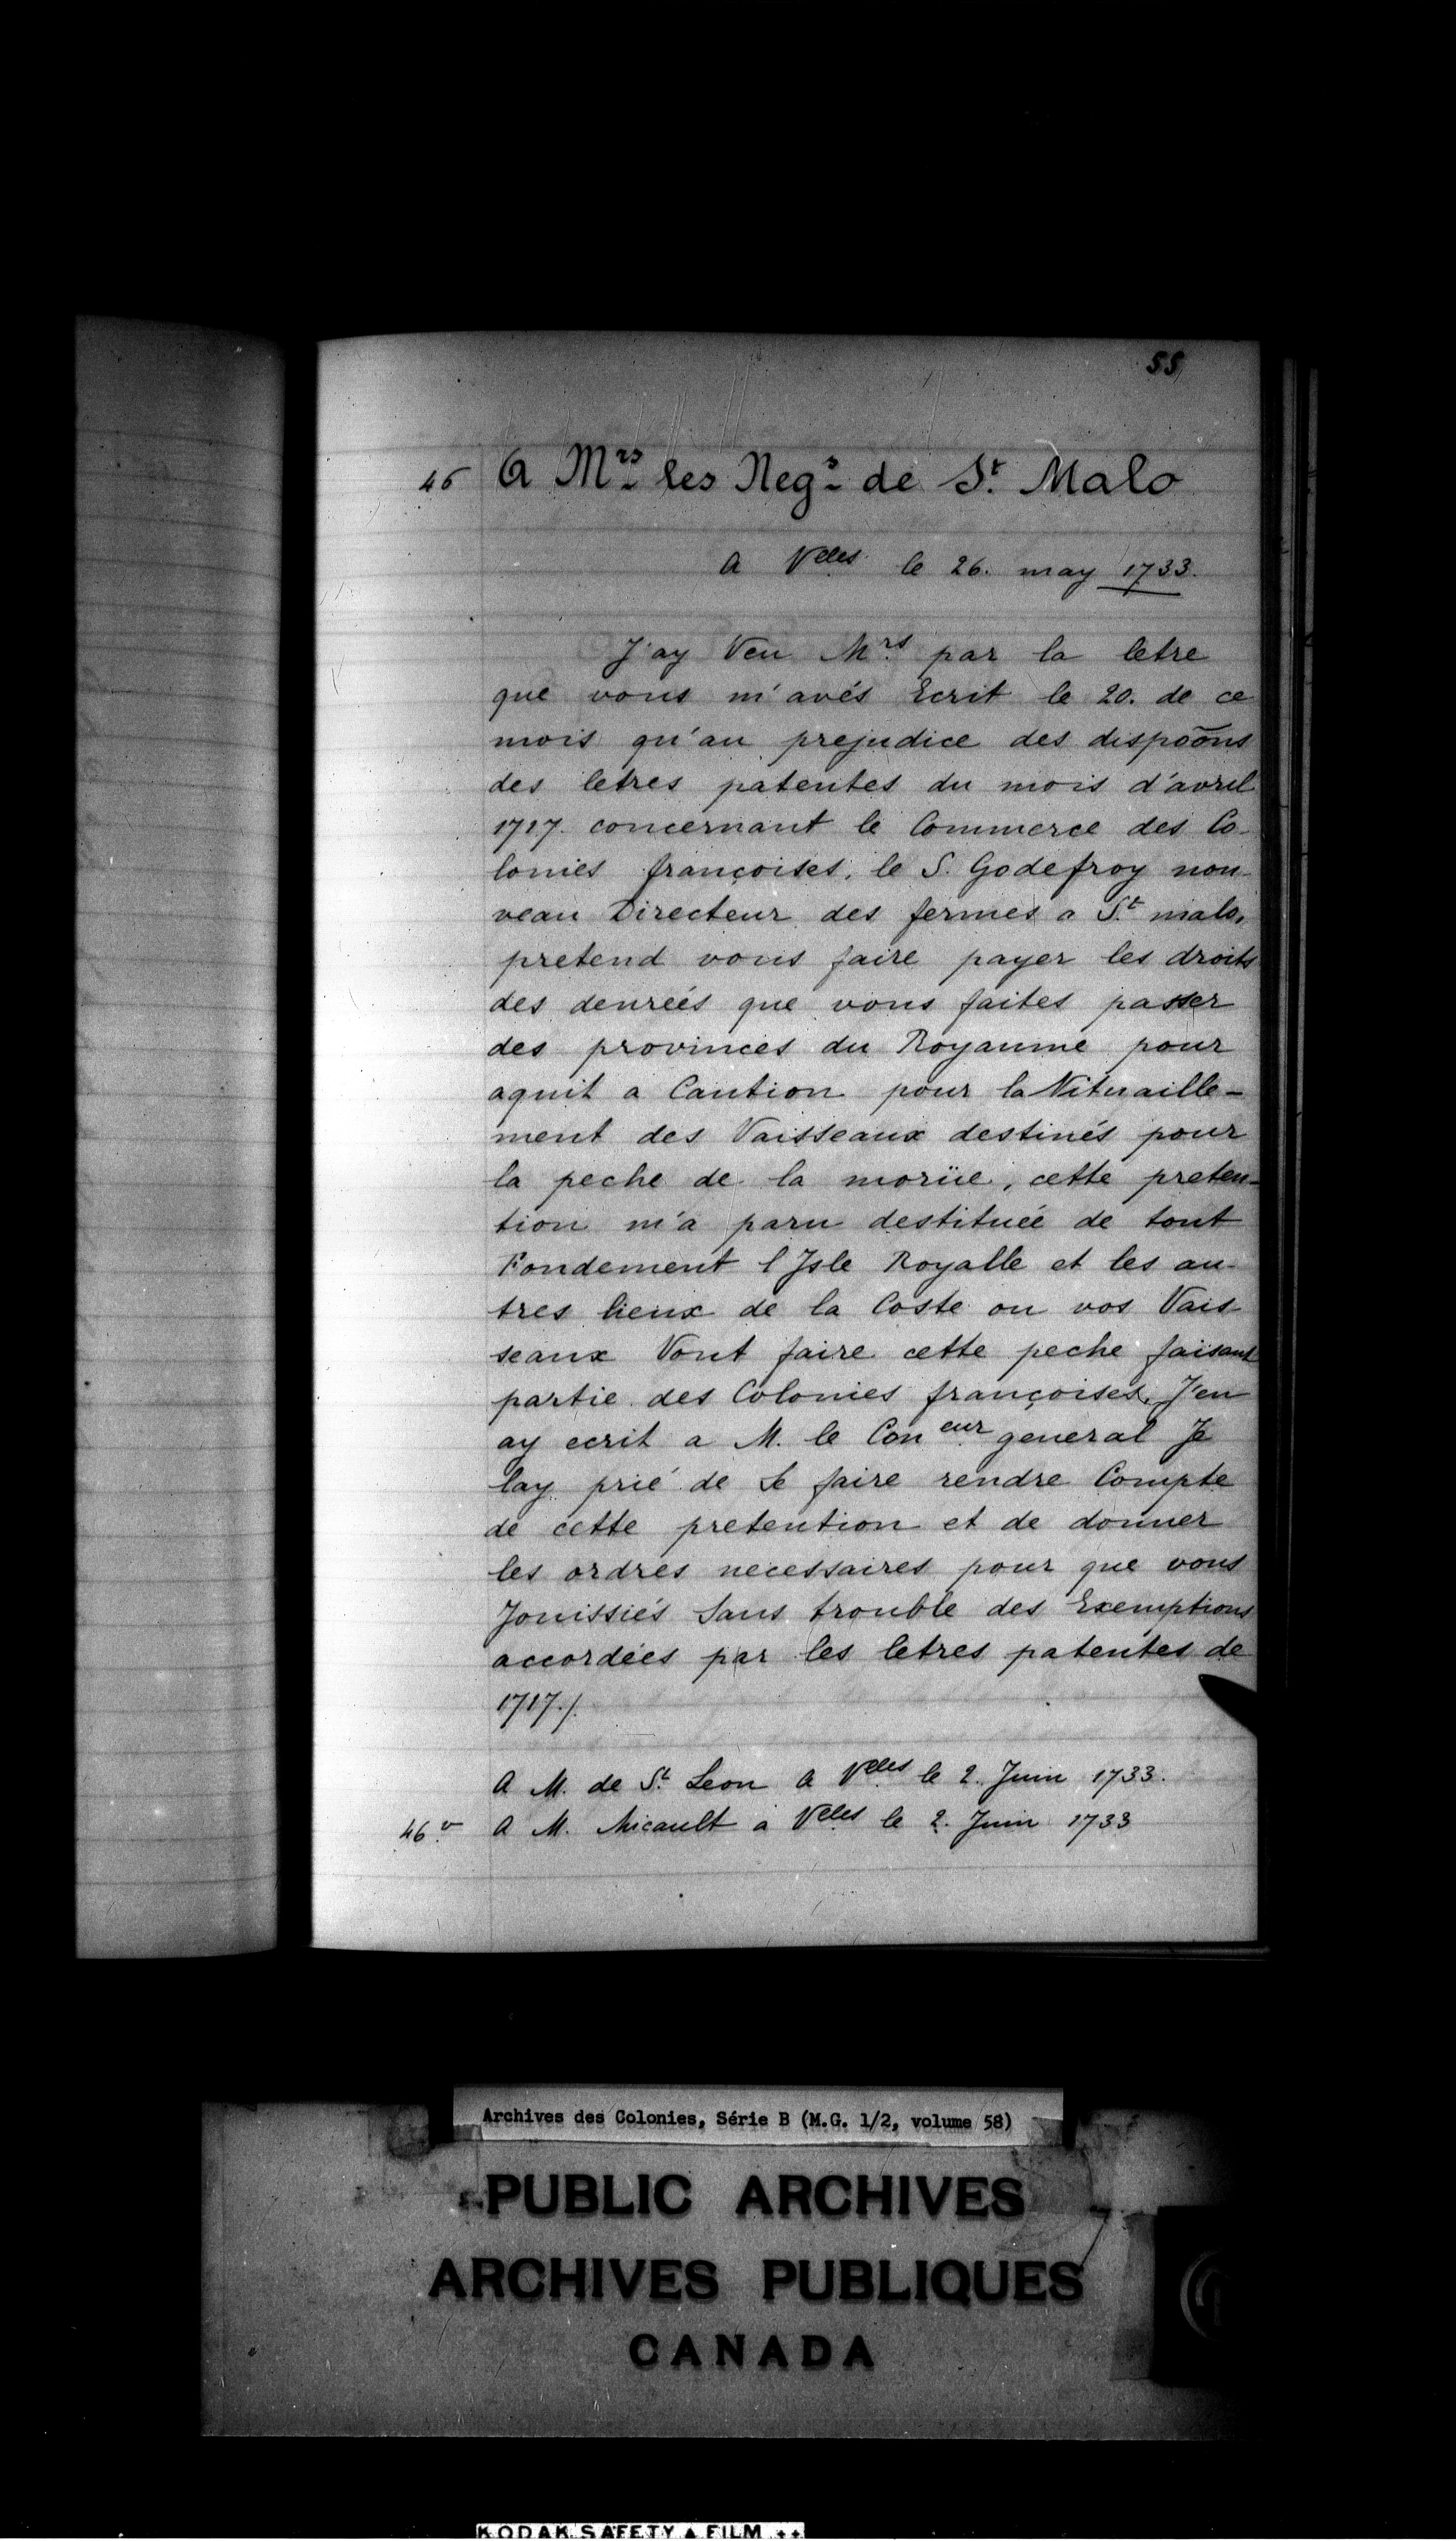 55
46 A Mrs les Negs de St Malo
A Velles le 26. may 1733.
J'ay Veu Mrs par la letre
que vous m'avés Ecrit le 20. de ce
mois qu'au prejudice des dispoõns
des letres patentes du mois d'avril
1717. concernant le Commerce des Co-
lonies françoises, le S. Godefroy nou-
veau Directeur des fermes a St malo,
pretend vous faire payer les droits
des denreés que vous faites passer
des provinces du Royaume pour
aquit a Caution pour la Vituaille-
ment des Vaisseaux destinés pour
la peche de la morüe, cette preten-
tion m'a paru destituée de tout
Fondement l Isle Royalle et les au-
tres lieux de la Coste ou vos Vais-
seaux Vont faire cette peche faisant
partie des Colonies françoises, J'en
ay ecrit a M. le Con eur general Je
lay prié de Se faire rendre Compte
de cette pretention et de donner
les ordres necessaires pour que vous
Jouissiés Sans trouble des Exemptions
accordées par les letres patentes de
1717./.
A M. de St Leon A Velles le 2. Juin 1733.
46.v A M. Micault a Velles le 2. Juin 1733
Archives des Colonies, Série B (M.G. 1/2, volume 58)
PUBLIC ARCHIVES
ARCHIVES PUBLIQUES
CANADA
KODAK SAFETY ▲ FILM ++